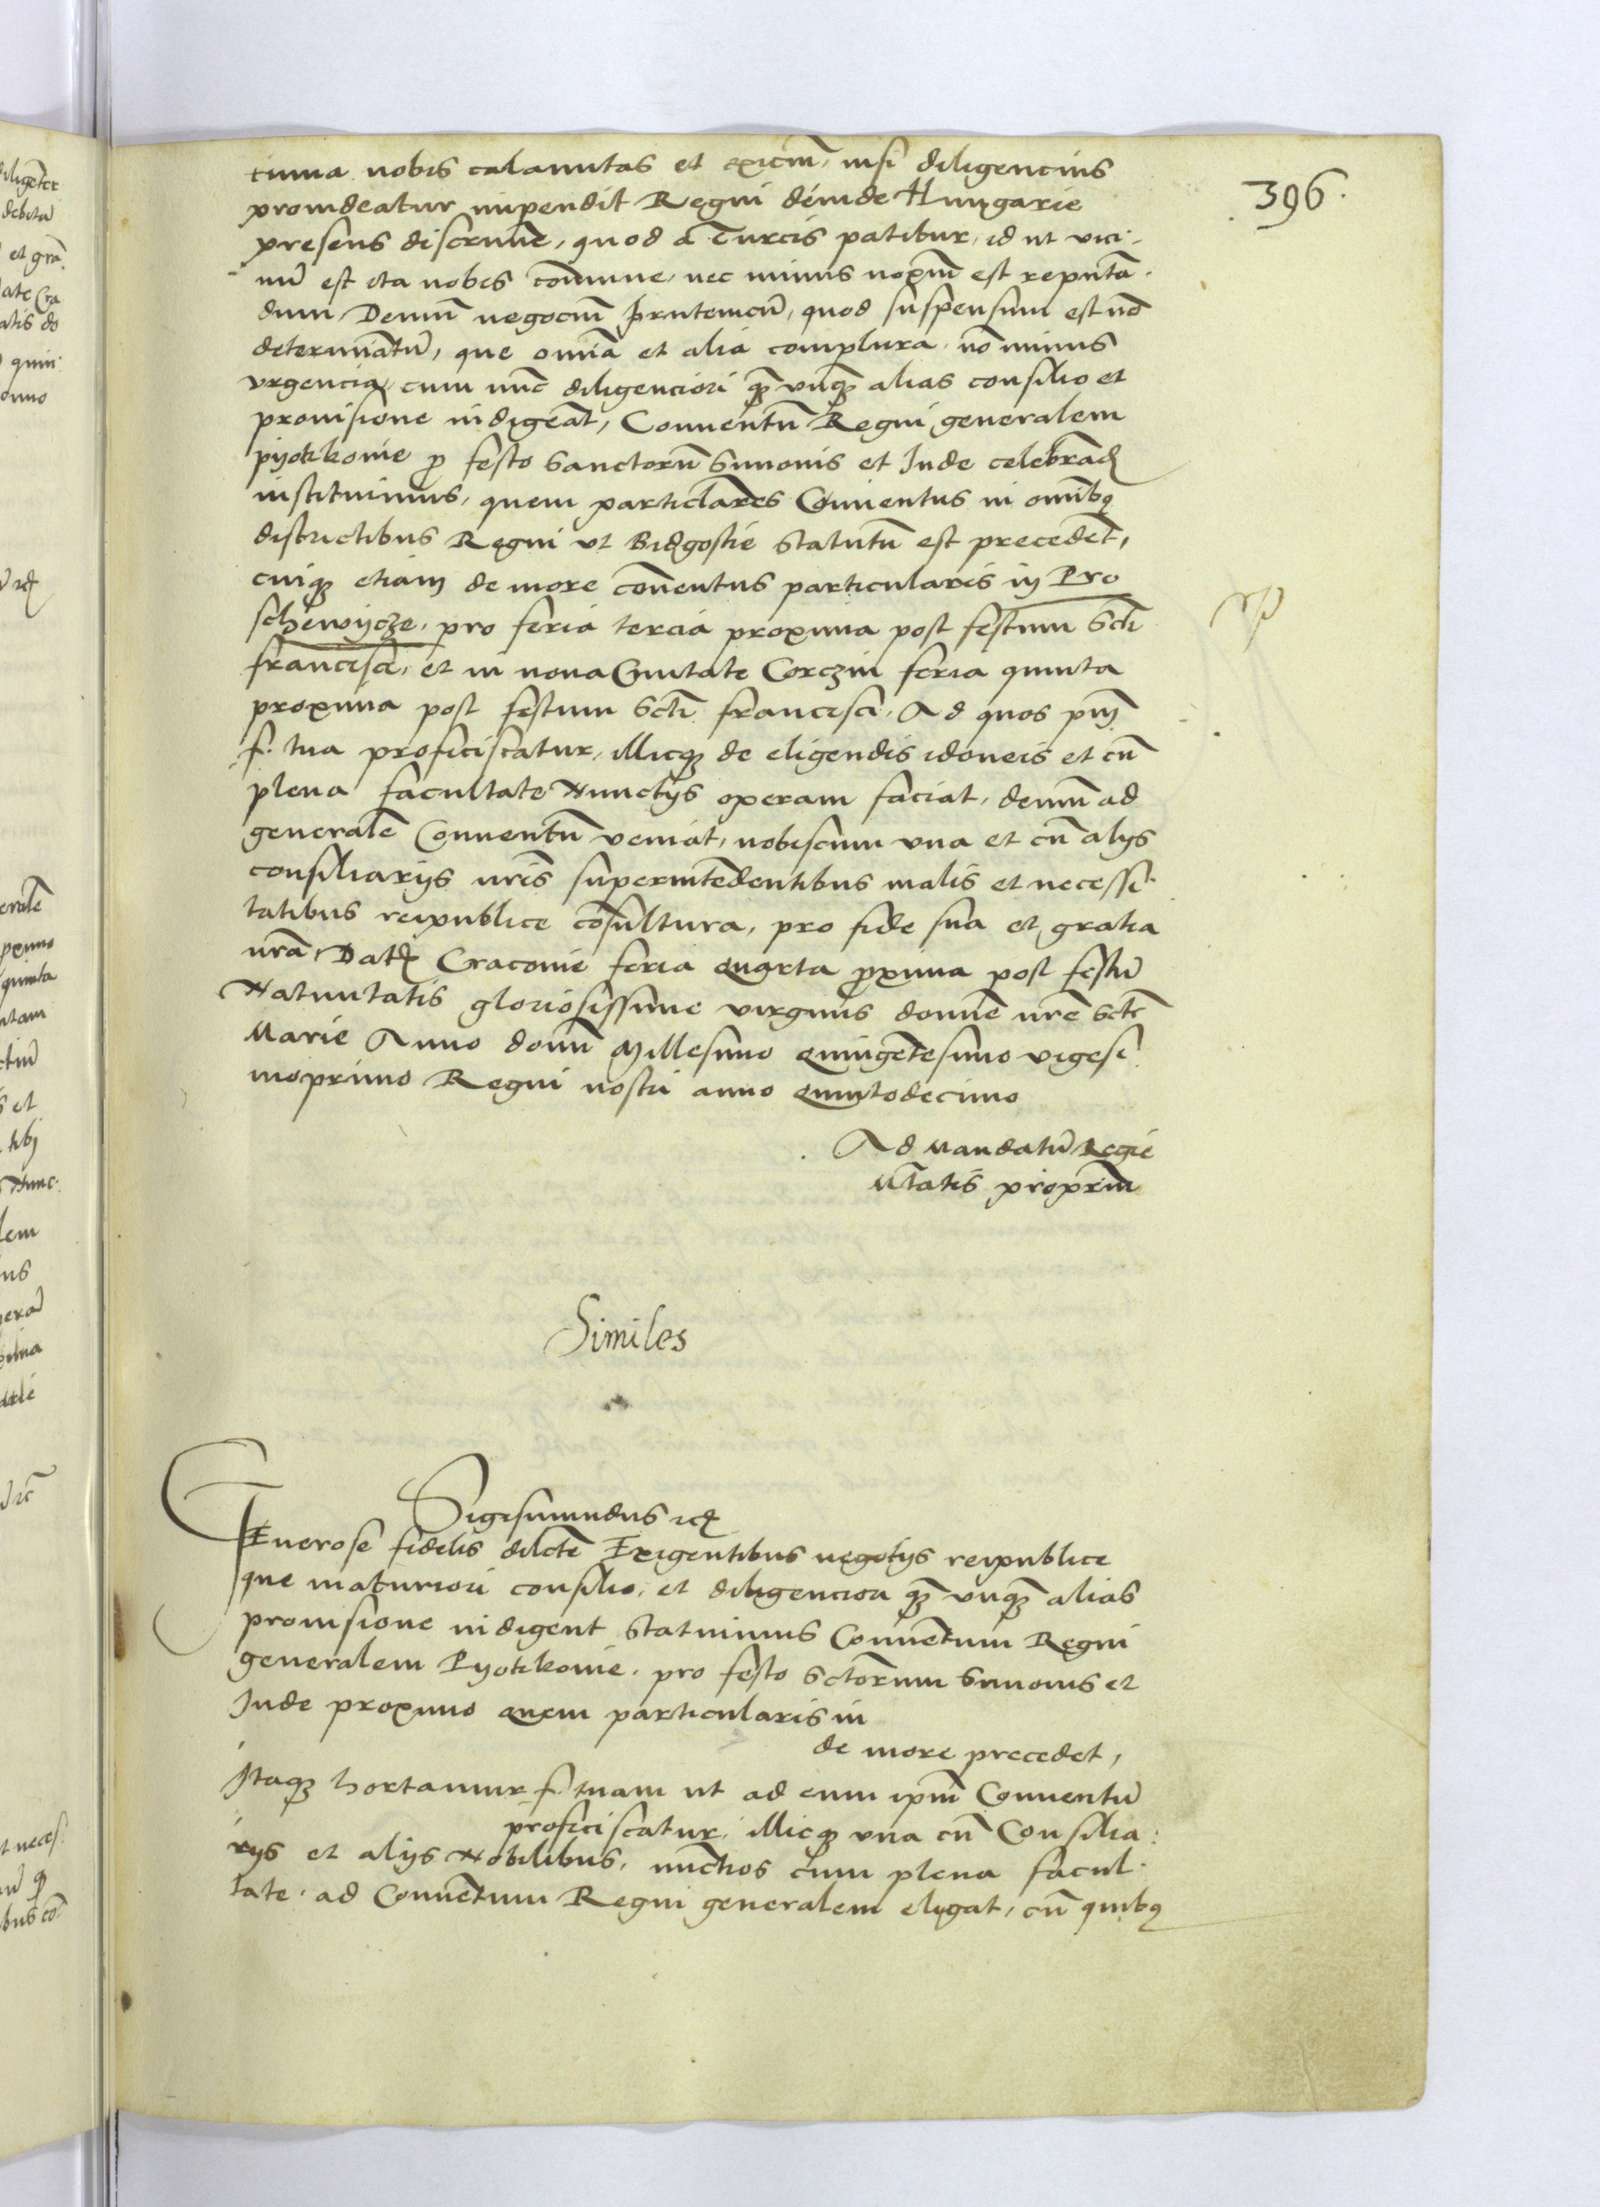 396.
tima nobis calamitas et exiciũ, nisi diligencius
prouideatur impendit Regni deinde Hungarie
presens discrimẽ, quod a Turcis patitur, id ut vici-
nũ est ita nobis cõmune, nec minus noxiũ est reputã-
dum, Demũ negociũ pruteniCũ, quod suspensum est nõ
determinatũ, que omia et alia complura nõ minus
vrgencia, cum nũc diligenciori q̃ vnq̃ alias consilio et
prouisione indigeãt, Conuentũ Regni generalem
pijotrkouie p festo Sanctorũ Simonis et Jude celebrãd
instituimus, quem particlares Cõuentus in omibq
districtibus Regni ut Bidgostie Statutũ est precedẽt,
cuiqz etiam de more conẽtus particularis in Pro
schewijcze, pro feria tercia proxima post festum Scti
francisci, et in noua Ciuitate Corczin feria quinta
proxima post festum Scti francisci, Ad quos pm̃
f. tua proficiscatur, illicqz de eligendis idoneis et cũ
plena facultate Nunctijs operam faciat, demũ ad
generalẽ Conuentũ veniat, nobiscum vna et cũ alijs
consiliarijs nris superintẽdentibus malis et necessi-
tatibus reipublice cõsultura, pro fide sua et gratia
nrã, Dat Cracouie feria quarta pxima post festũ
Natiuitatis gloriosissime virginis domine nrẽ Sctẽ
Marie Anno domi Millesimo quingẽtesimo vigesi
moprimo Regni nostri anno quintodecimo
Ad Mandatũ Regie
Mtatis propriũ
Similes
Sigismundus etc
Generose fidelis dilcte Exigentibus negotijs reipublice
que maturiori consilio, et diligenciori q̃ vnq̃ alias
prouisione indigent Statuimus Conuẽtum Regni
generalem Pyotrkouie. pro festo Sctõrum Simonis et
Jude proximo quem particularis in
de more precedet,
Itaqz hortamur f. tuam ut ad eum ipm̃ Conuentũ
proficiscatur, illicqz vna cũ Consilia:
rijs et alijs Nobilibus, nunctios cum plena facul-
tate. ad Conuẽtum Regni generalem eligat, cũ quibq